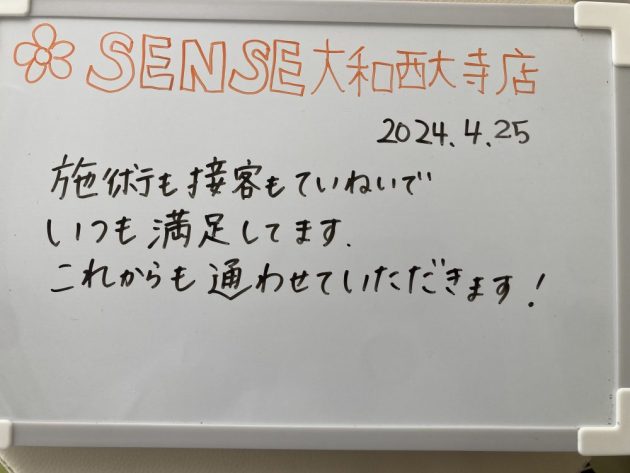 SENSE大和西大寺店
2024.4.25
施術も接客もていねいで
いつも満足してます.
これからも通わせていただきます!